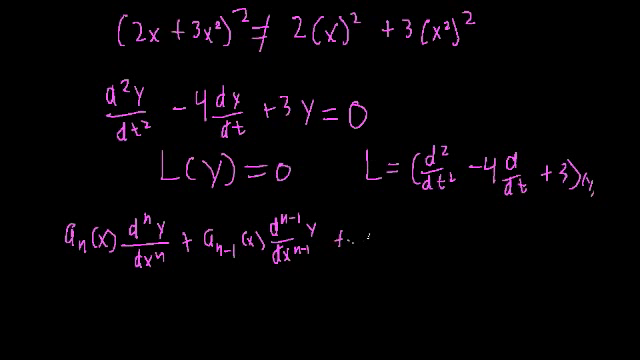 (2x + 3x²)² ≠ 2(x)² + 3(x²)²
d²y/dt² - 4 dy/dt + 3y = 0
L(y) = 0 L = (d²/dt² - 4 d/dt + 3)(y)
aₙ(x) dⁿy/dxⁿ + aₙ₋₁(x) dⁿ⁻¹y/dxⁿ⁻¹ + ..